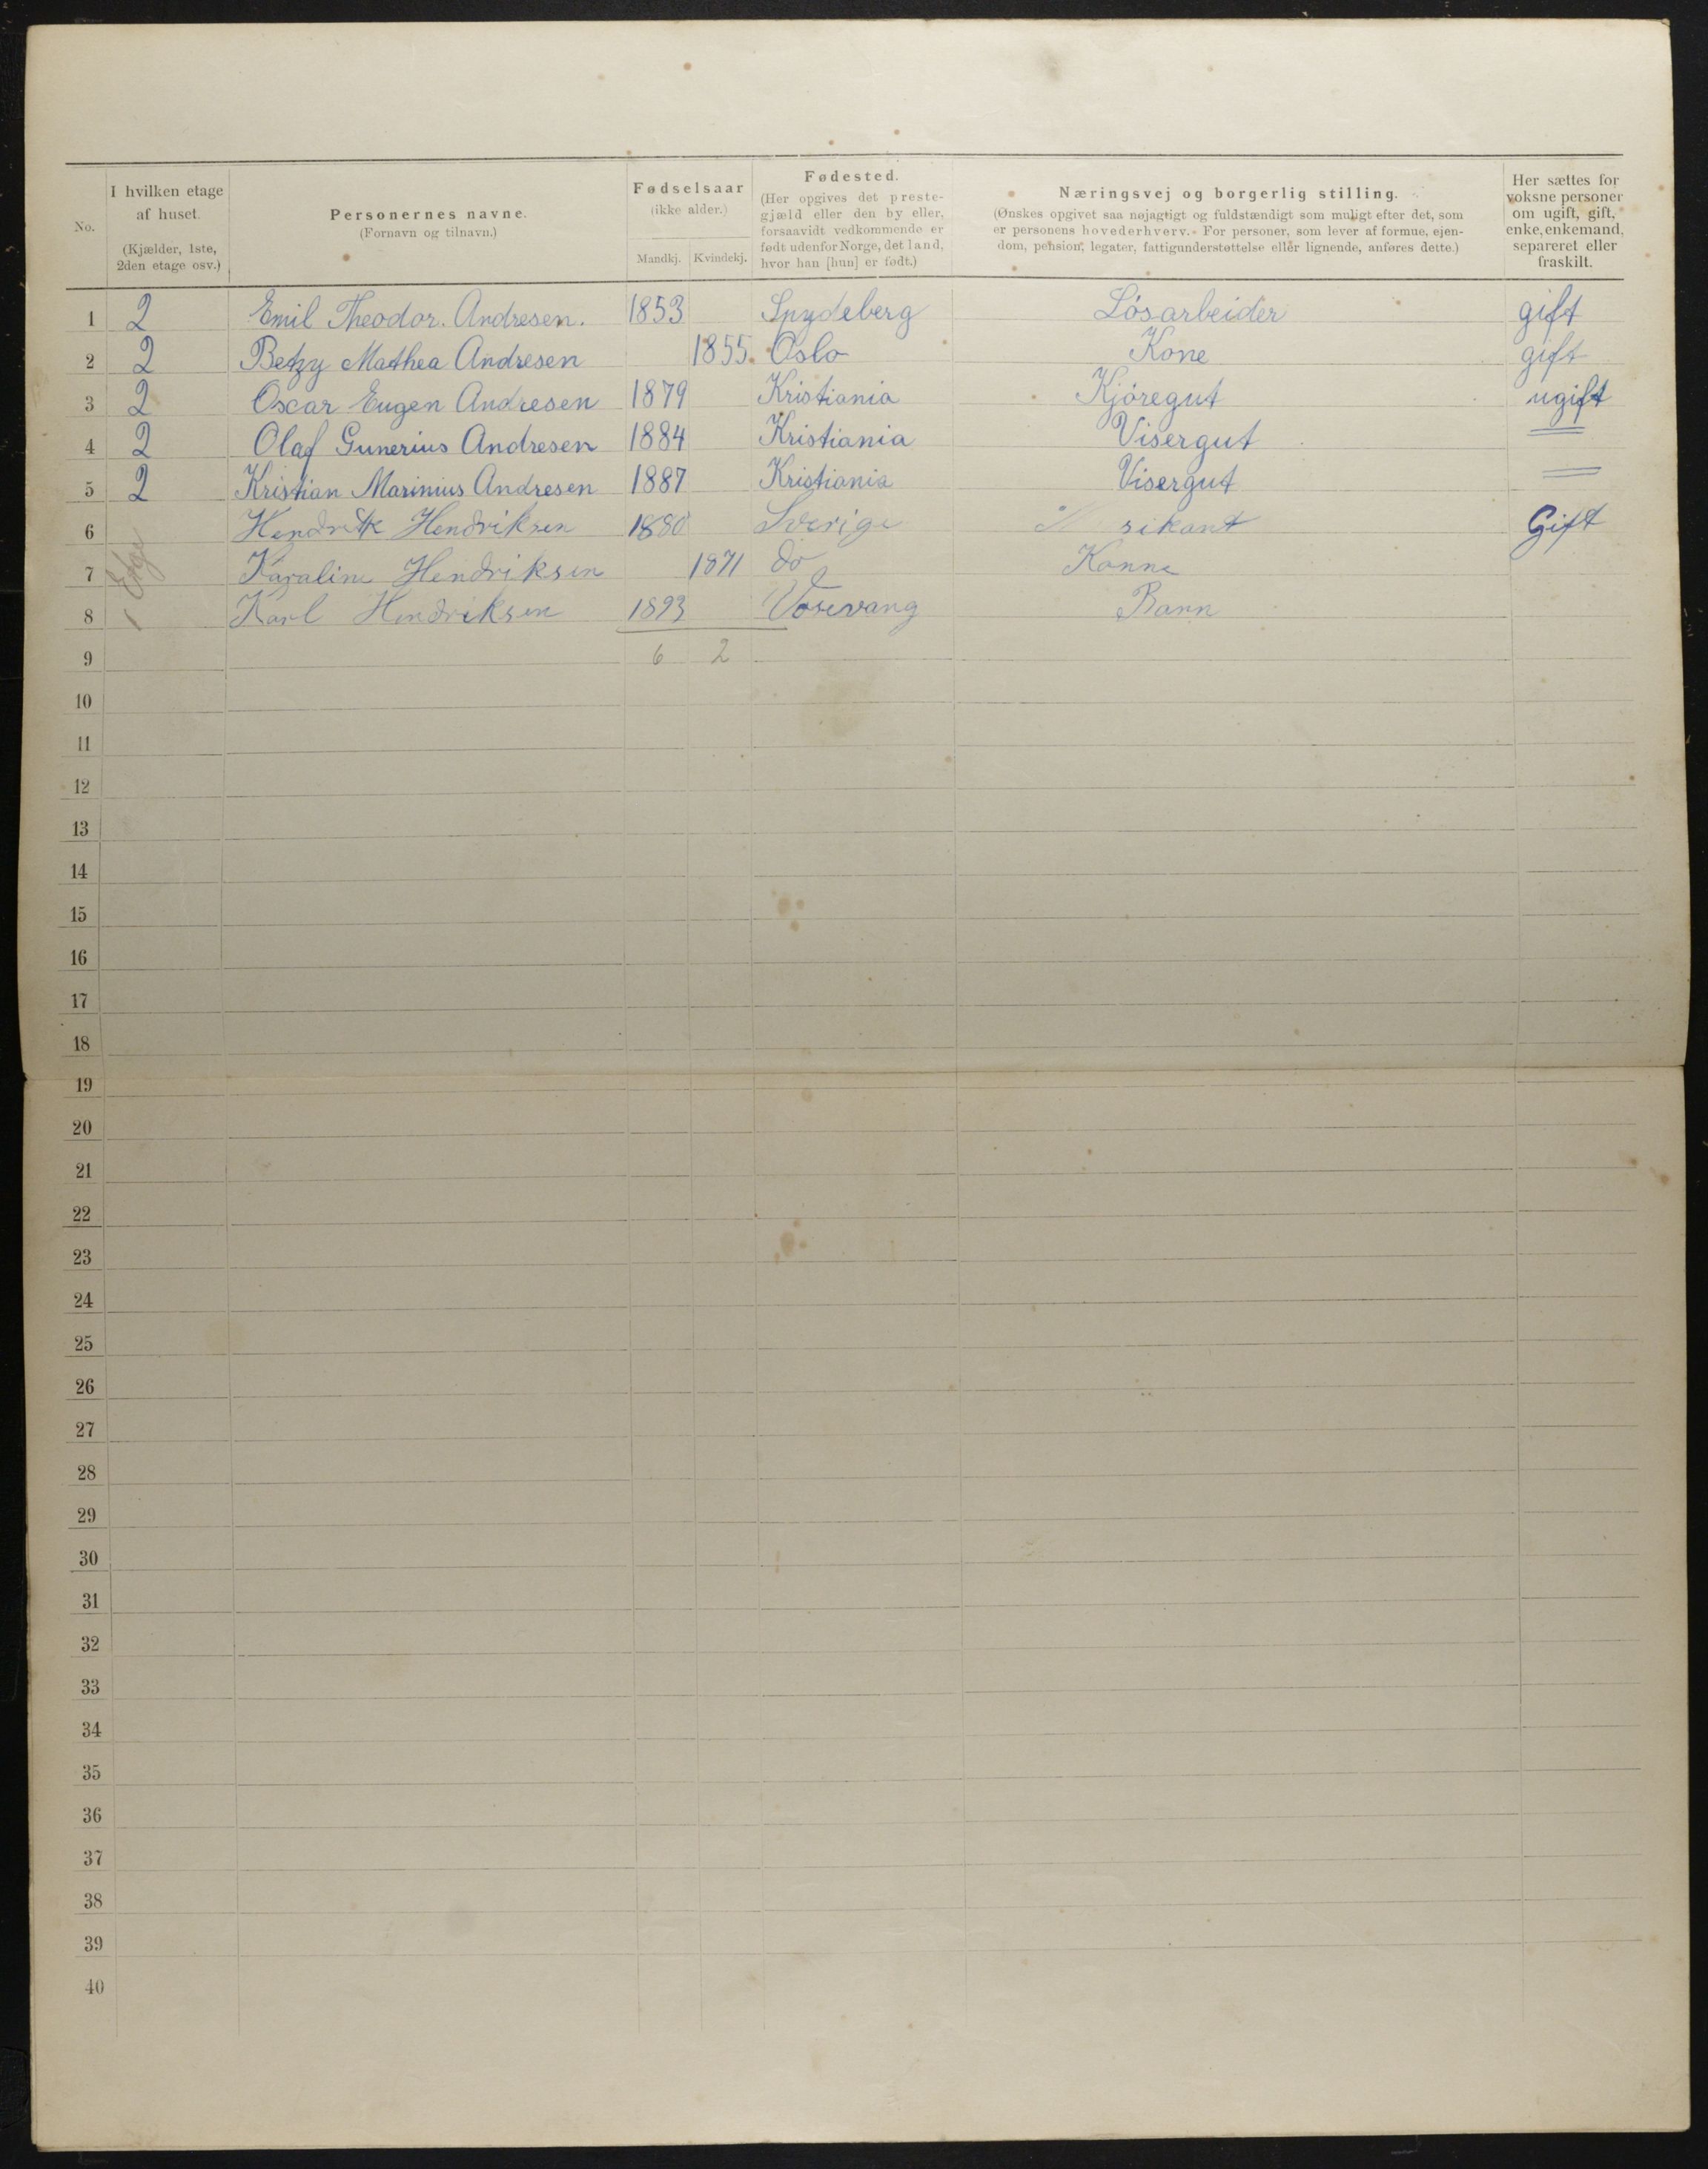 No.
I hvilken etage
af huset.
(Kjælder, 1ste,
2den etage osv.)
Personernes navne.
(Fornavn og tilnavn.)
Fødselsaar
(ikke alder.)
Mandkj. Kvindekj.
Fødested.
(Her opgives det preste-
gjæld eller den by eller,
forsaavidt vedkommende er
født udenfor Norge, det land,
hvor han [hun] er født.)
Næringsvej og borgerlig stilling.
(Ønskes opgivet saa nøjagtigt og fuldstændigt som muligt efter det, som
er personens hovederhverv. For personer, som lever af formue, ejen-
dom, pension, legater, fattigunderstøttelse eller lignende, anføres dette.)
Her sættes for
voksne personer
om ugift, gift,
enke, enkemand,
separeret eller
fraskilt.
1 2 Emil Theodor. Andresen. 1853 Spydeberg Løsarbeider gift
2 2 Betzy Mathea Andresen 1855 Oslo Kone gift
3 2 Oscar Eugen Andresen 1879 Kristiania Kjøregut ugift
4 2 Olaf Gunerius Andresen 1884 Kristiania Visergut =
5 2 Kristian Marinius Andresen 1887 Kristiania Visergut =
6 Hendrik Hendriksen 1880 Sverige M sikant Gift
7 1 Etge Karaline Hendriksen 1871 do Konne
8 Karl Hendriksen 1893 Vosevang Barn
9 6 2
10
11
12
13
14
15
16
17
18
19
20
21
22
23
24
25
26
27
28
29
30
31
32
33
34
35
36
37
38
39
40